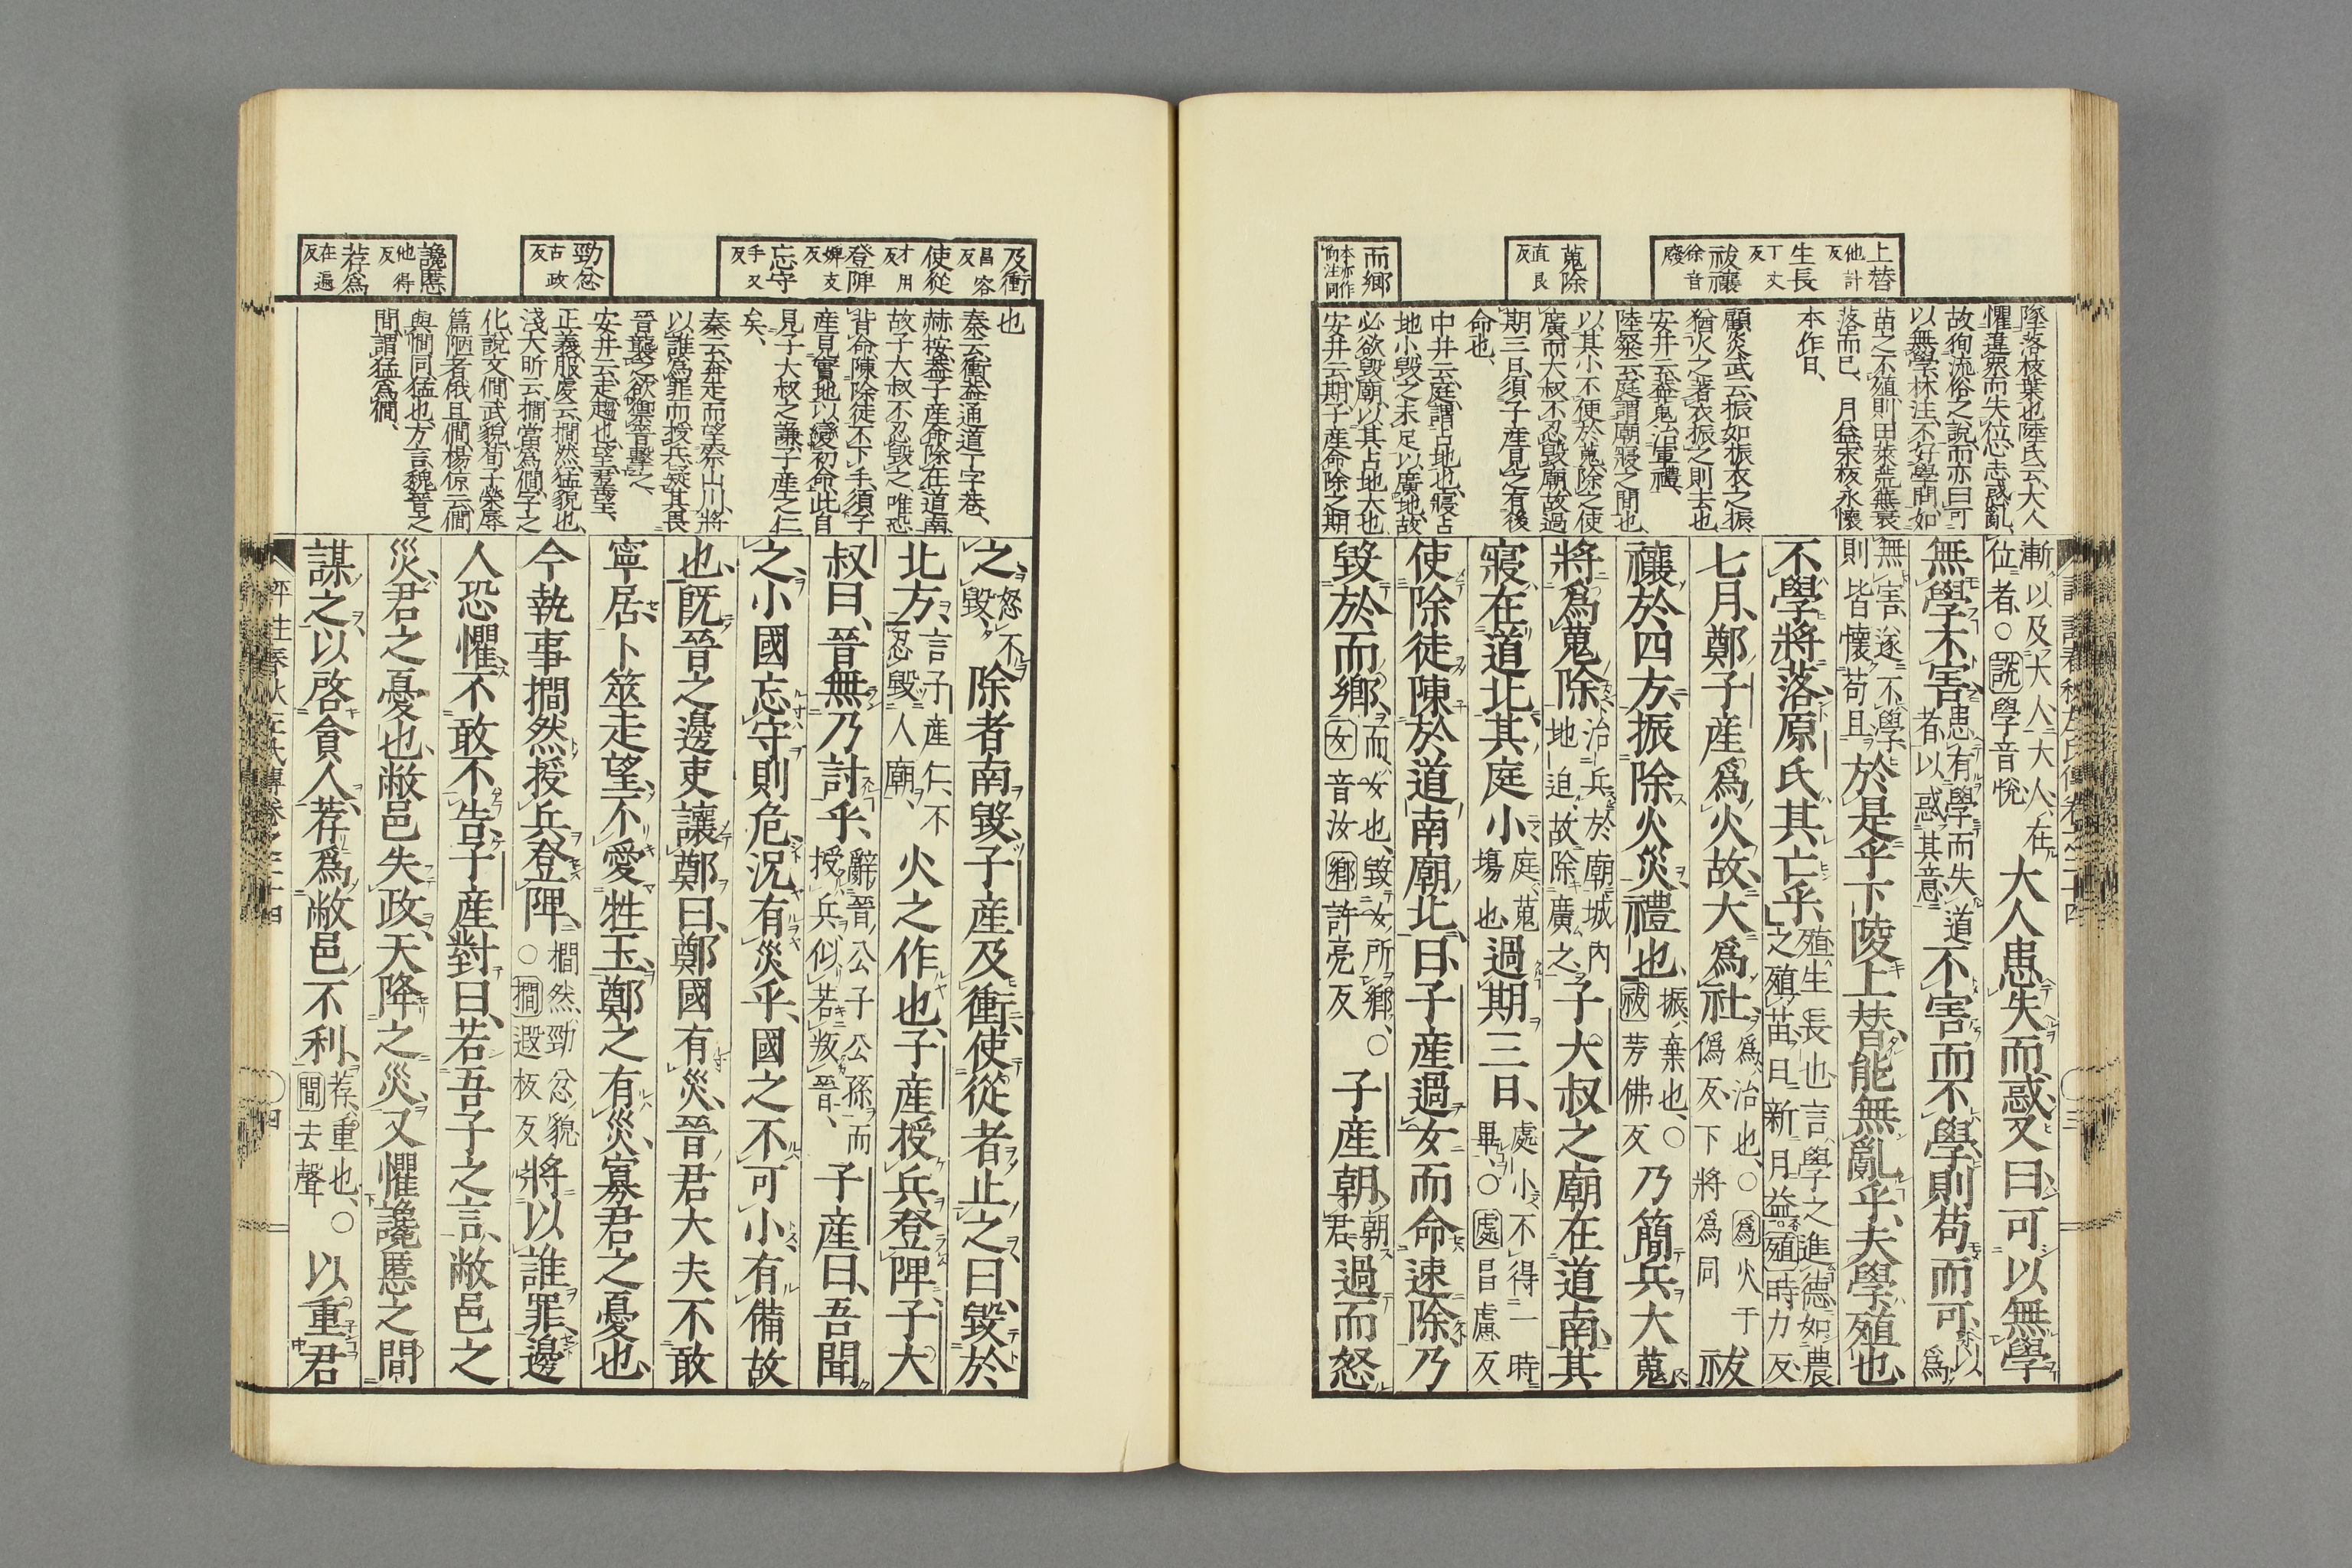 上替他計反
生長丁丈反
祓禳徐音廢
蒐除直良反
而鄉本亦作向注同
墜落枝葉也陸氏云大人
懼違衆而失位心志惑亂
故狥流俗之說而亦曰可
以無學林注不好學問如
苗之不殖則田萊荒無衰
落而已、月益宋板永懷
本作日、
顧炎武云振如振衣之振
猶火之著衣振之則去也
安井云葢蒐治軍禮、
陸粲云庭謂廟寢之間也
以其小不便於蒐除之使
廣而大叔不忍毀廟故過
期三日須子產見之有後
命也、
中井云庭謂占地也寢占
地小毀之未足以廣地故
必欲毀廟以其占地大也
安井云期子產命除之期
漸以及大人、大人、在位者、○說學音悅 大人患失而惑、又曰、可以無學
無學不害、患有學而失道者、以惑其意 不害而不學、則苟而可、以爲
無害、遂不學、則皆懷苟且 於是乎下陵上替、能無亂乎、夫學殖也、
不學將落、原氏其亡乎、殖、生長也、言學之進德、如農之殖苗、日新日月益、○殖時力反
七月、鄭子產爲火故、大爲社、爲、治也、○爲火于僞反、下將爲同 祓
禳於四方、振除火災、禮也、振、棄也、○祓芳佛反 乃簡兵大蒐
將爲蒐除、治兵於廟、城內地迫、故除廣之、子大叔之廟在道南、其
寢在道北、其庭小、庭、蒐塲也、過期三日、處小不得一時畢、○處昌慮反
使除徒陳於道南廟北、曰、子產過女而命速除、乃
毀於而鄉、而、女也、毀女所鄉、○女音汝鄉許亮反○ 子產朝、朝君、過而怒
及衝昌容反
使從才用反
登陴婢支反
忘守手又反
勁忿古政反
讒慝他得反
荐爲在遍反
也
秦云衝葢通道丁字巷、
赫按葢子產命除在道南
故子大叔不忍毀之唯恐
背命陳除徒不下手須子
產見實地以變初命此自
見子大叔之謙子產之仁
矣、
秦云奔走而望祭山川將
以誰爲罪而授兵疑其畏
晉襲之欲禦晉擊之、
安井云走趨也望羣望、
正義服虔云撊然猛貌也
淺大昕云撊當爲僩字之
化說文僩武貌荀子榮辱
篇陋者俄且僩楊倞云僩
與憪同猛也方言魏晉之
間謂猛爲僩、
之、怒不毀、除者南毀、子產及衝、使從者止之曰、毀於
北方、言子產仁、不忍毀人廟、火之作也、子產授兵登陴、子大
叔曰、晉無乃討乎、辭晉公子公孫、而授兵、似若叛晉、 子產曰、吾聞
之、小國忘守則危、況有災乎、國之不可小、有備故
也、既、晉之邊吏讓鄭曰、鄭國有災、晉君大夫不敢
寧居、卜筮走望、不愛牲玉、鄭之有災、寡君之憂也、
今執事撊然授兵登陴、撊然、勁忿貌○撊遐板反 將以誰罪、邊
人恐懼、不敢不告、子產對曰、若吾子之言、敝邑之
災、君之憂也、敝邑失政、天降之災、又懼讒慝之間
謀之、以啓貪人、荐爲敝邑不利、荐、重也、○間去聲 以重君